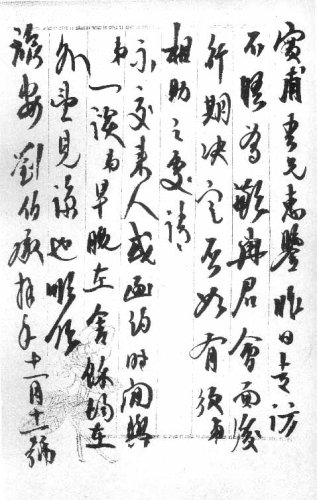 實甫吾兄惠鑒昨日走訪
不晤為歉與君會面後
行期決定否如有須弟
相助之處請
示交來人或函約時間與
弟一談弟早晚在舍餘均在
外望見諒也順頌
旅安劉伯承拜手十一月十一號